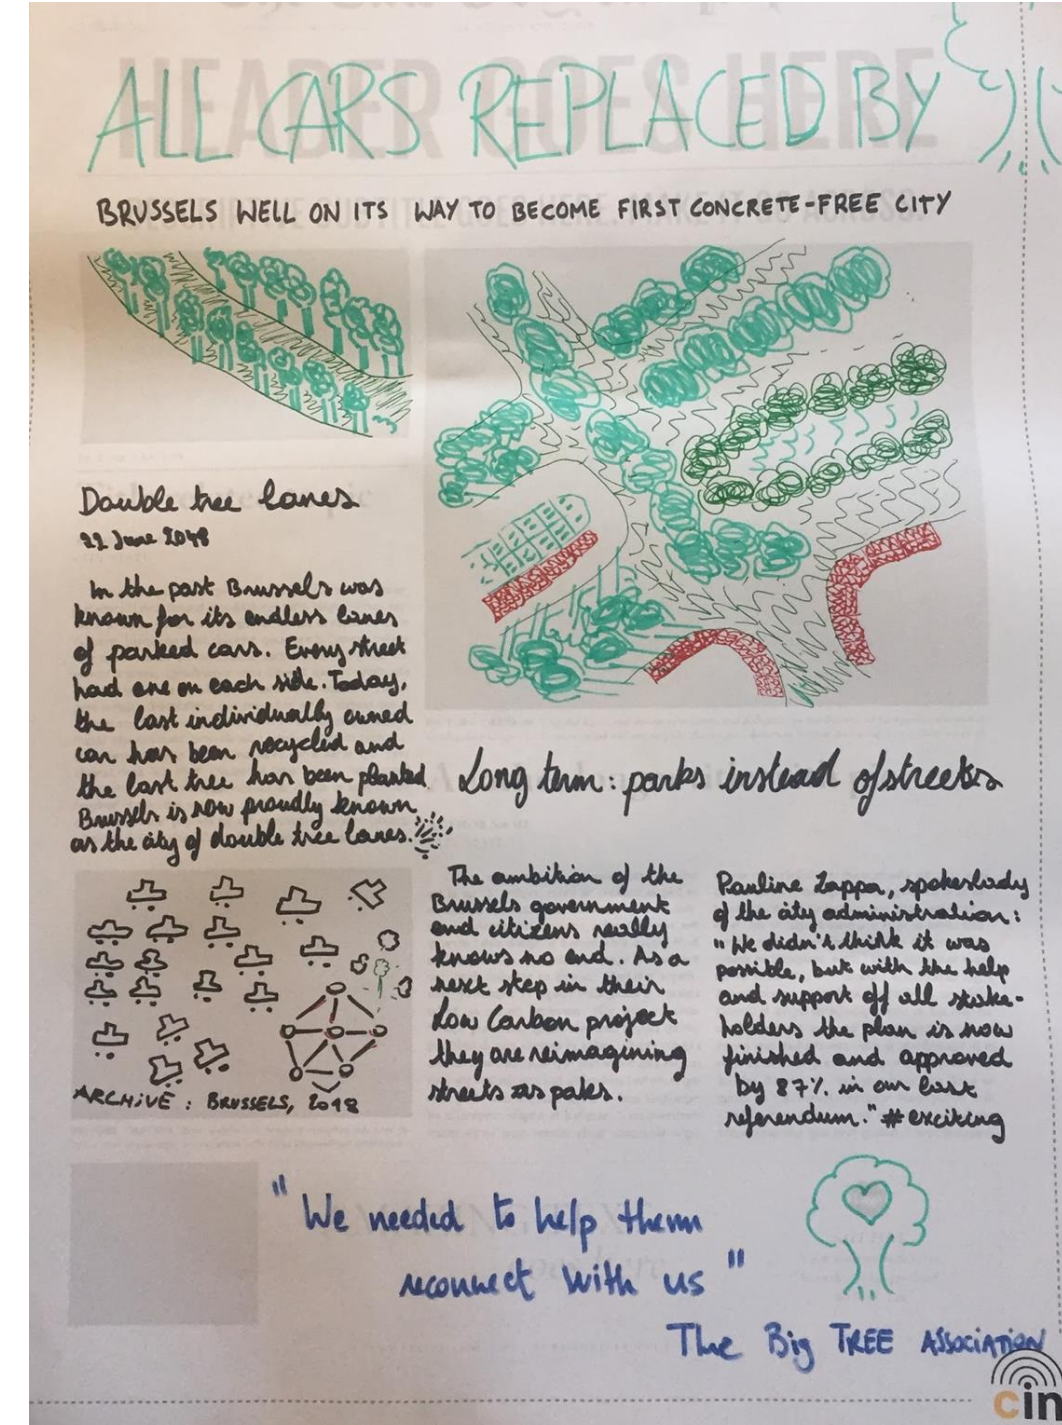 ALL CARS REPLACED BY
BRUSSELS WELL ON ITS WAY TO BECOME FIRST CONCRETE-FREE CITY
Double tree lanes
22 June 2048
In the past Brussels was
known for its endless lanes
of parked cars. Every street
had one on each side. Today,
the last individually owned
car has been recycled and
the last tree has been planted.
Brussels is now proudly known
as the city of double tree lanes.
ARCHIVE : BRUSSELS, 2018
Long term: parks instead of streets
The ambition of the
Brussels government
and citizens really
knows no end. As a
next step in their
Low Carbon project
they are reimagining
streets as paks.
Pauline Zappa, spokeslady
of the city administration:
"We didn't think it was
possible, but with the help
and support off all stake-
holders the plan is now
finished and approved
by 87% in our last
referendum." #exciting
"We needed to help them
reconnect with us"
The Big TREE ASSOCIATION
cin